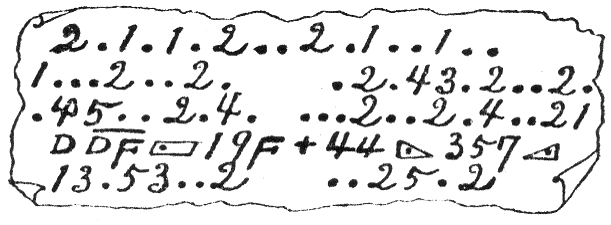 2.1.1.2..2.1..1..
1...2..2. .2.43.2..2.
.45..2.4. ...2..2.4..21
D DF ▭ 19F + 44 ◺ 357 ◿
13.53..2 ..25.2